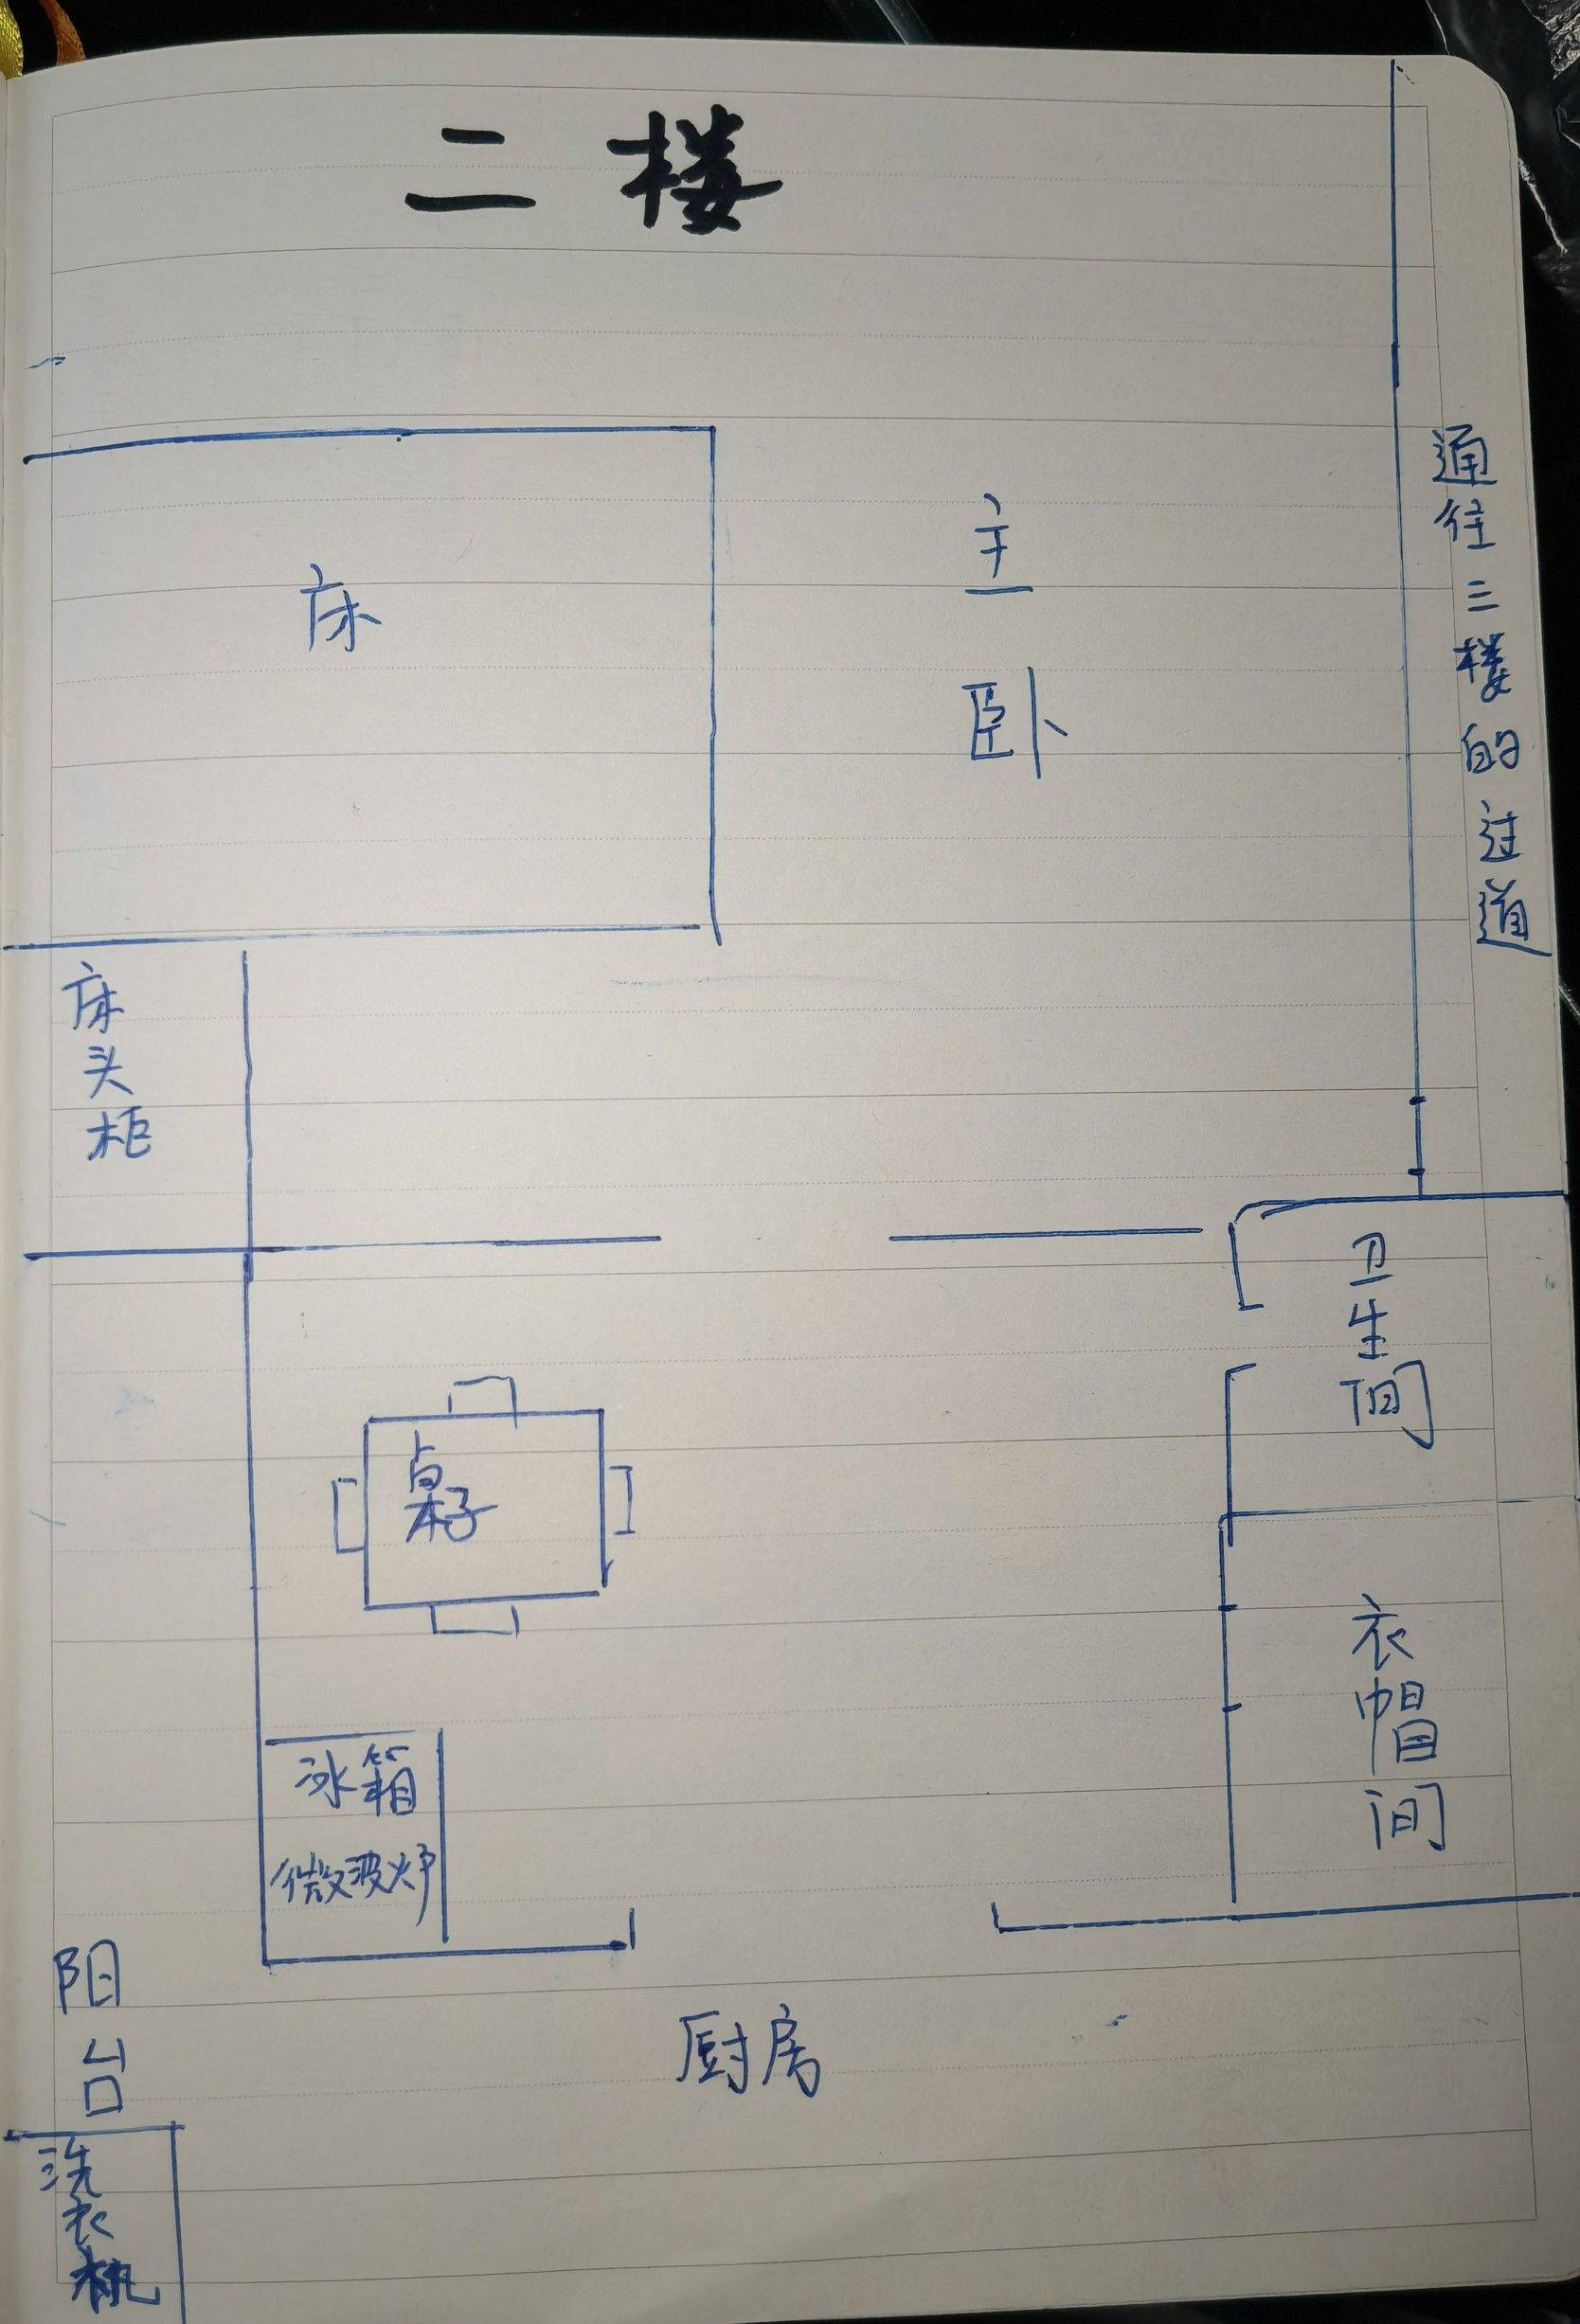 二楼
床
主卧
通往三楼的过道
床头柜
卫生间
桌子
衣帽间
冰箱
微波炉
阳台
厨房
洗衣机